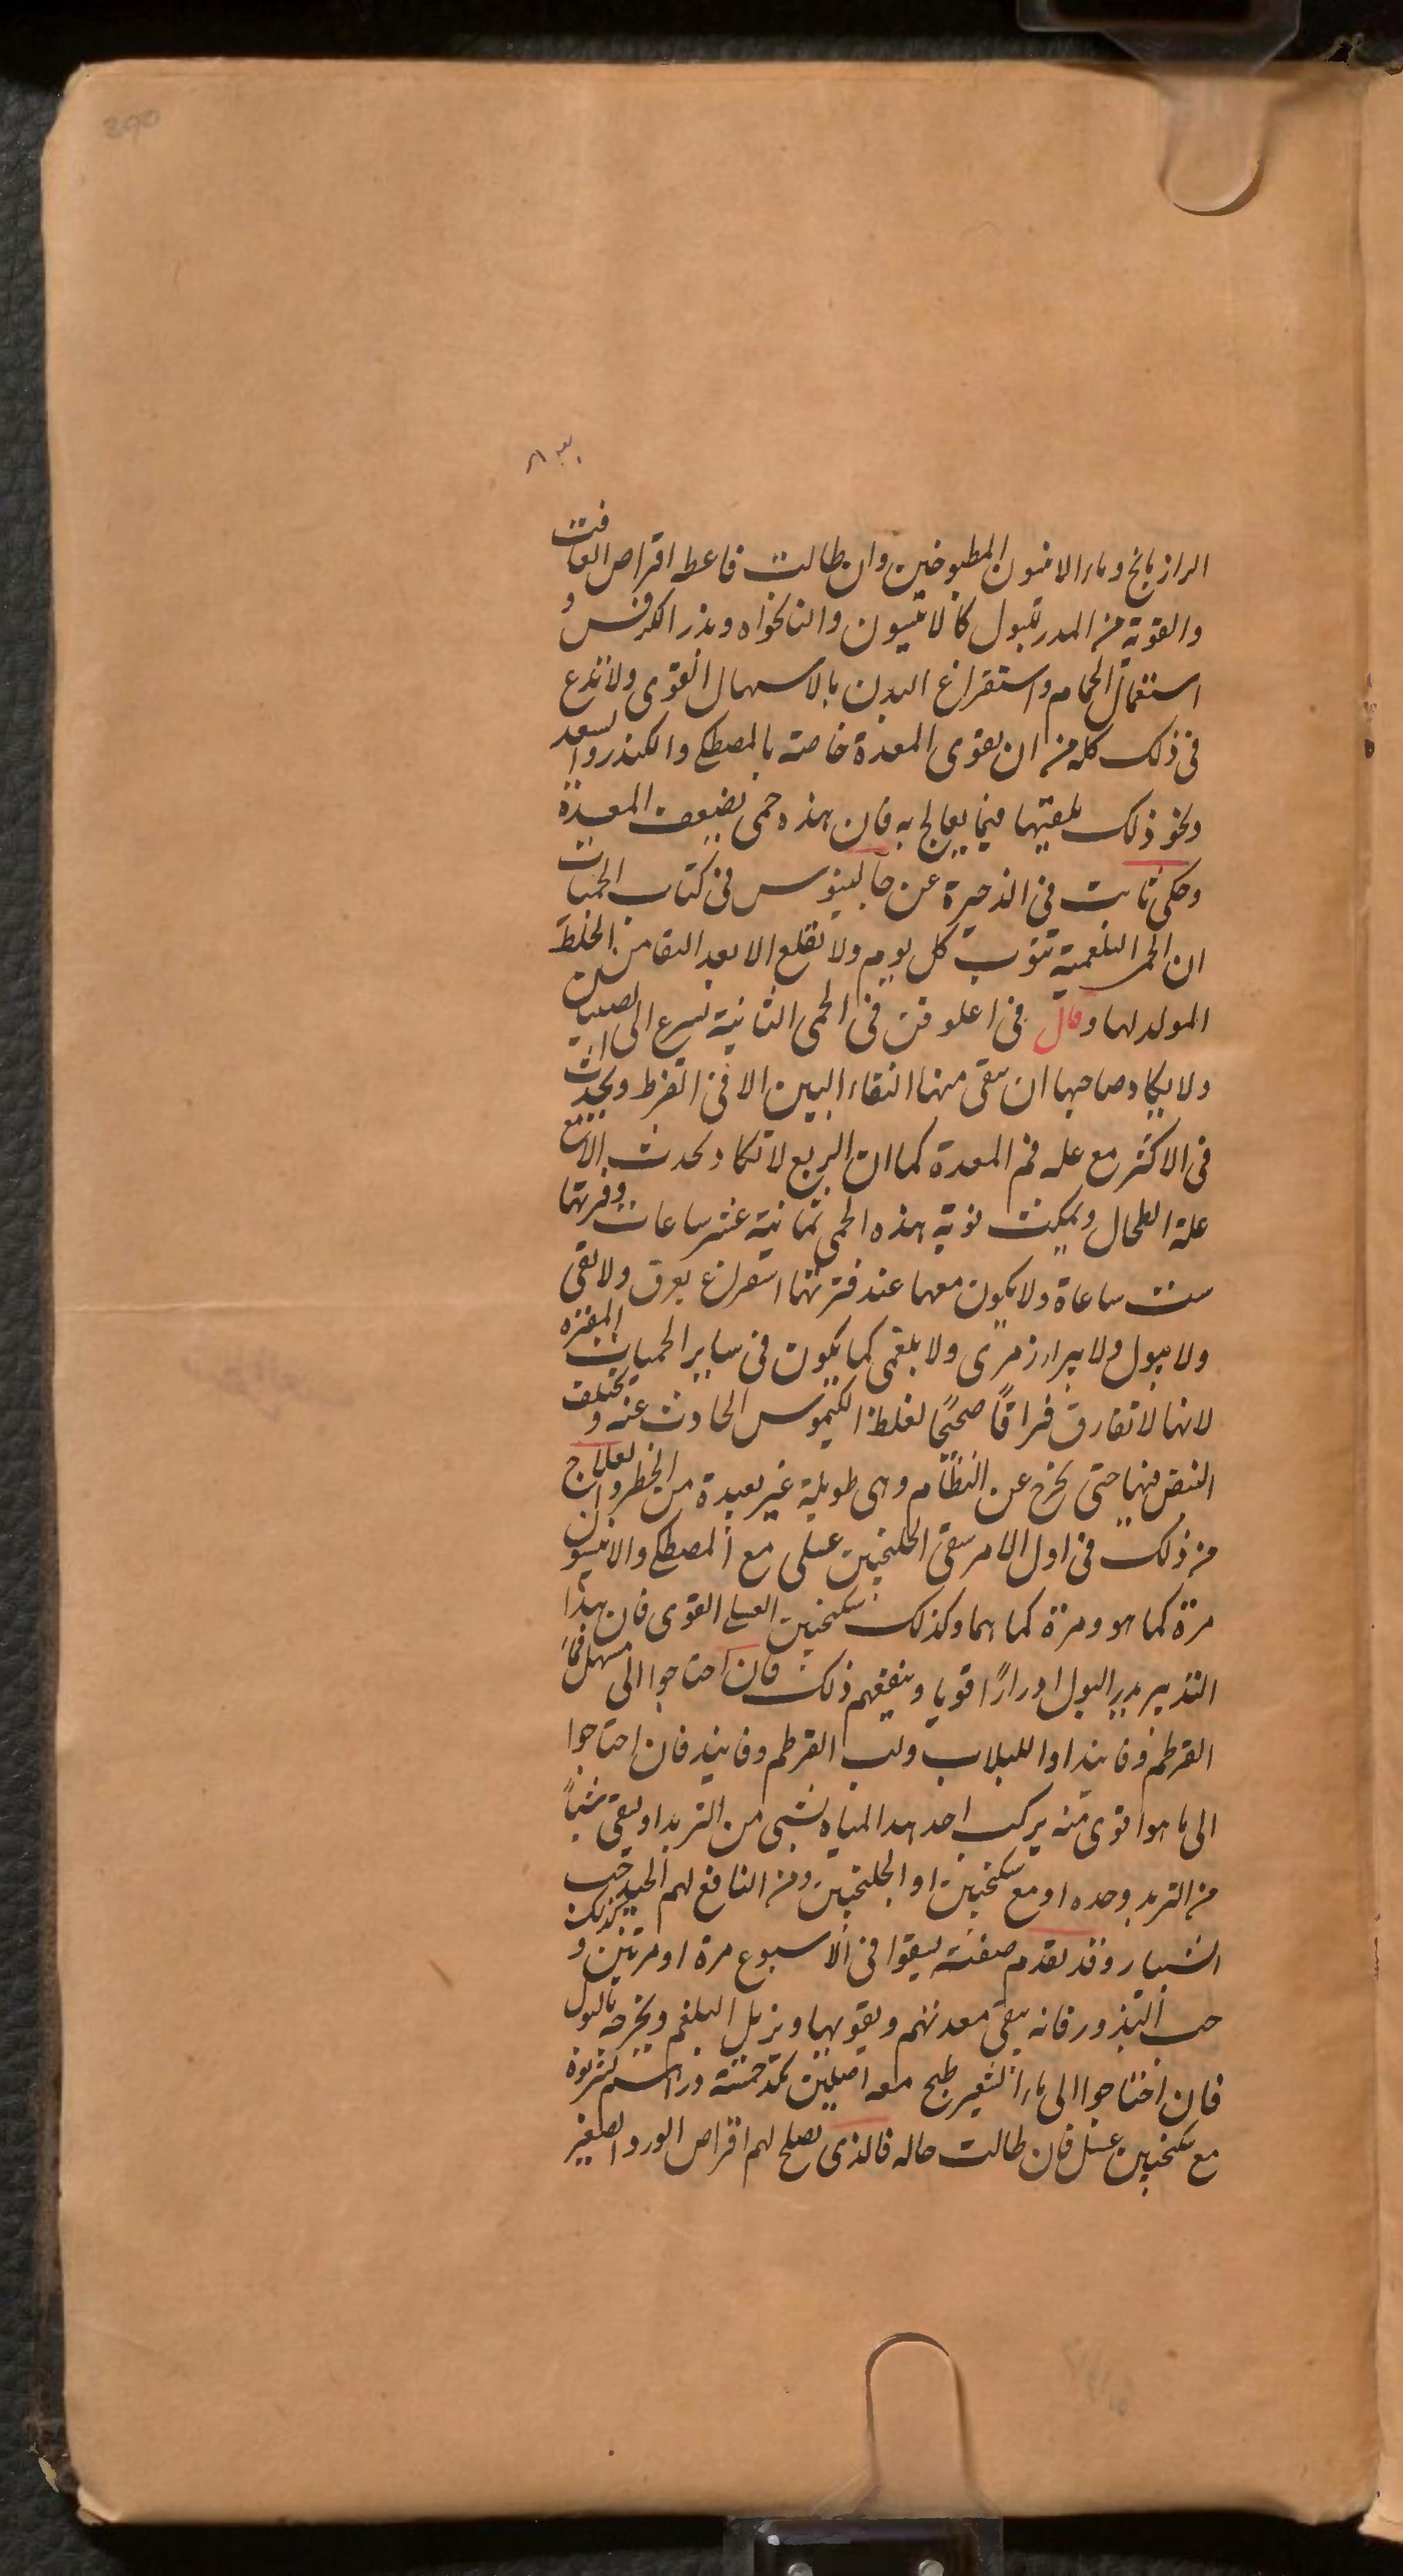 الرازیانج وماء الانیسون المطبوخین وان طالت فاعط اقراص الغافت
والقویة من المدر للبول کالانیسون والنانخواه وبذر الکرفس و
استعمال الحمام واستفراغ البدن بالاسهال القوی ولا تدع
فی ذلک کله من ان یقوی المعدة خاصة بالمصطکی والکندر والسعد
ونحو ذلک فیما یعالج به فان هذه حمی تضیعف المعدة
وحکی ثابت فی الذخیرة عن جالینوس فی کتاب الحمیات
ان الحمی البلغمیة تنوب کل یوم ولا تقلع الا بعد النقا من الخلط
المولد لها وقال فی اغلوقن فی الحمی الثانیة تسرع الی الصبیان
ولا یکاد صاحبها ان ینقی منها النقاء البین الا فی الفرط ویحدث
فی الاکثر مع علة فم المعدة کما ان الربع لا تکاد تحدث الا مع
علة الطحال ویمکث نوبة هذه الحمی ثمانیة عشر ساعات وفترتها
ست ساعاة ولا یکون معها عند فترتها استفراغ بعرق ولا بقی
ولا ببول ولا ببراز مری ولا بلغمی کما یکون فی سایر الحمیات المفتره
لانها لا تفارق فراقًا صحیًا لغلظ الکیموس الحادث عنه ویختلف
النبض فیها حتی یخرج عن النظام وهی طویلة غیر بعیدة من الخطر والعلاج
من ذلک فی اول الامر سقی الجلنجبین عسلی مع المصطکی والانیسون
مرة کما هو ومرة کما هما وکذلک سکنجبین العسلی القوی فان هذا
التدبیر یدر البول ادرارًا قویا وینفعهم ذلک فان احتاجوا الی مسهل فماء
القرطم وفانیذ او اللبلاب ولب القرطم وفانیذ فان احتاجوا
الی ما هو اقوی منه یرکب احد هذا المیاه بشی من التربد او یسقی شیأً
من التربد وحده او مع سکنجبین او الجلنجبین ومن النافع لهم الجید حب
الشبیار وقد تقدم صفته لیسقوا فی الاسبوع مرة او مرتین وکذلک
حب البذور فانه ینقی معدتهم ویقویها ویزیل البلغم ویخرجه بالبول
فان احتاجوا الی ماء الشعیر طبخ معه اصلین خمسة دراهم لیشربوه
مع سکنجبین عسل فان طالت حاله فالذی یصلح لهم اقراص الورد الصغیر